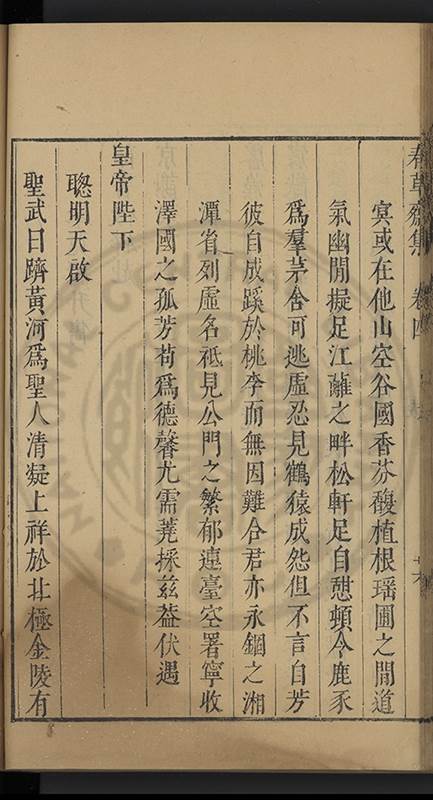 春草齋集 卷四
寞或在他山空谷國香芬馥植根瑶圃之間道
氣幽閒擬足江蘺之畔松軒足自憇頓令鹿豕
爲羣茅舍可逃虛忍見鶴猿成怨但不言自芳
彼自成蹊於桃李而無因難合君亦永錮之湘
潭省列虛名祗見公門之繁郁連臺空署寧收
澤國之孤芳苟爲德馨尤需蕘採兹葢伏遇
皇帝陛下
聦明天啟
聖武日躋黃河爲聖人清凝上祥於北極金陵有